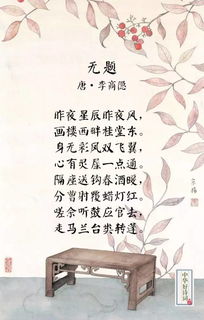 无题
唐·李商隐
昨夜星辰昨夜风，
画楼西畔桂堂东。
身无彩凤双飞翼，
心有灵犀一点通。
隔座送钩春酒暖，
分曹射覆蜡灯红。
嗟余听鼓应官去，
走马兰台类转蓬。
中华好诗词